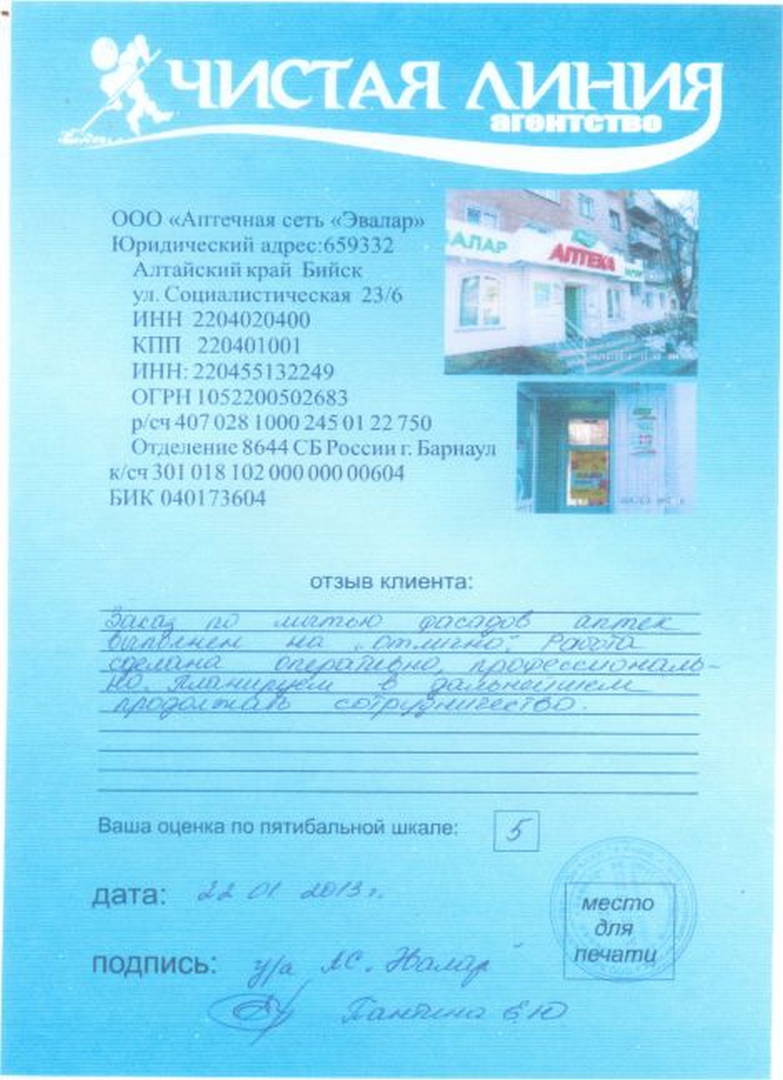 ЧИСТАЯ ЛИНИЯ
агентство
ООО «Аптечная сеть «Эвалар»
Юридический адрес:659332
Алтайский край Бийск
ул. Социалистическая 23/6
ИНН 2204020400
КПП 220401001
ИНН: 220455132249
ОГРН 1052200502683
р/сч 407 028 1000 245 01 22 750
Отделение 8644 СБ России г. Барнаул
к/сч 301 018 102 000 000 00604
БИК 040173604
АЛАР
АПТЕКА
отзыв клиента:
Заказ по мытью фасадов аптек
выполнен на "отлично". Работа
сделана оперативно, профессиональ-
но. Планируем в дальнейшем
продолжать сотрудничество.
Ваша оценка по пятибальной шкале: 5
дата: 22 01 2013г.
место
для
печати
подпись: у/а
Пантина Е.Ю